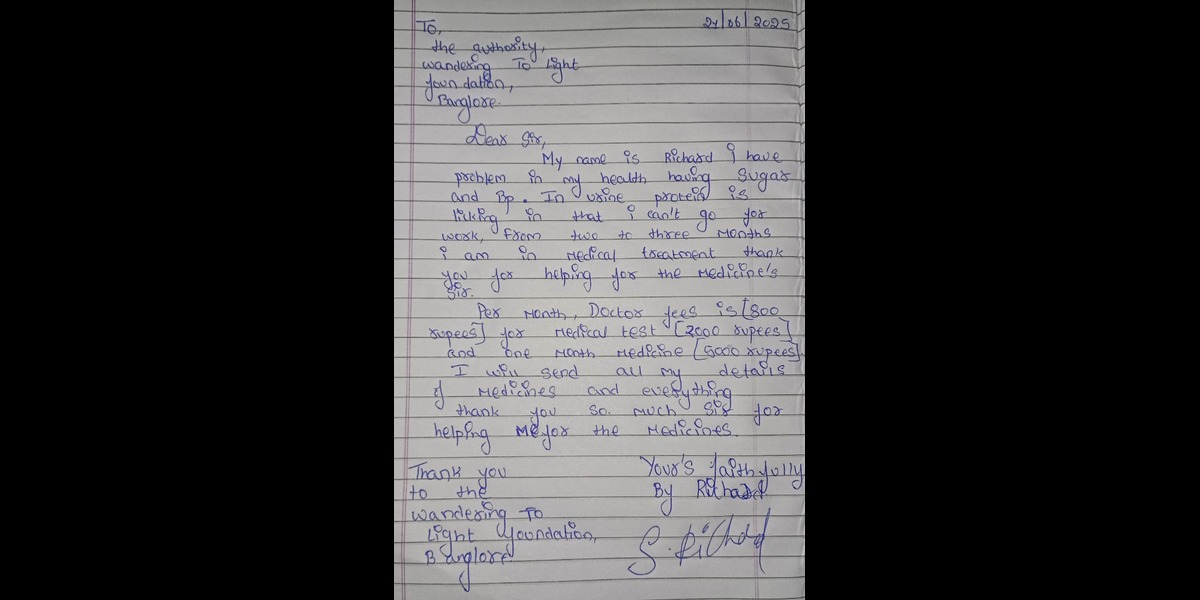 To,
27/06/2025
the authority,
wandering To Light
foundation,
Banglore.
Dear Sir,
My name is Richard i have
problem in my health having Sugar
and Bp. In urine protein is
licking in that i can't go for
work, From two to three Months
i am in Medical treatment thank
you for helping for the Medicine's
Sir.
Per Month, Doctor fees is [800
rupees] for Medical test [2000 rupees]
and one Month Medicine [5000 rupees].
I will send all my details
of Medicines and everything
thank you so. much Sir for
helping Me for the Medicines.
Thank you
to the
wandering To
Light foundation,
Banglore
Your's faithfully
By Richard
S. Richard